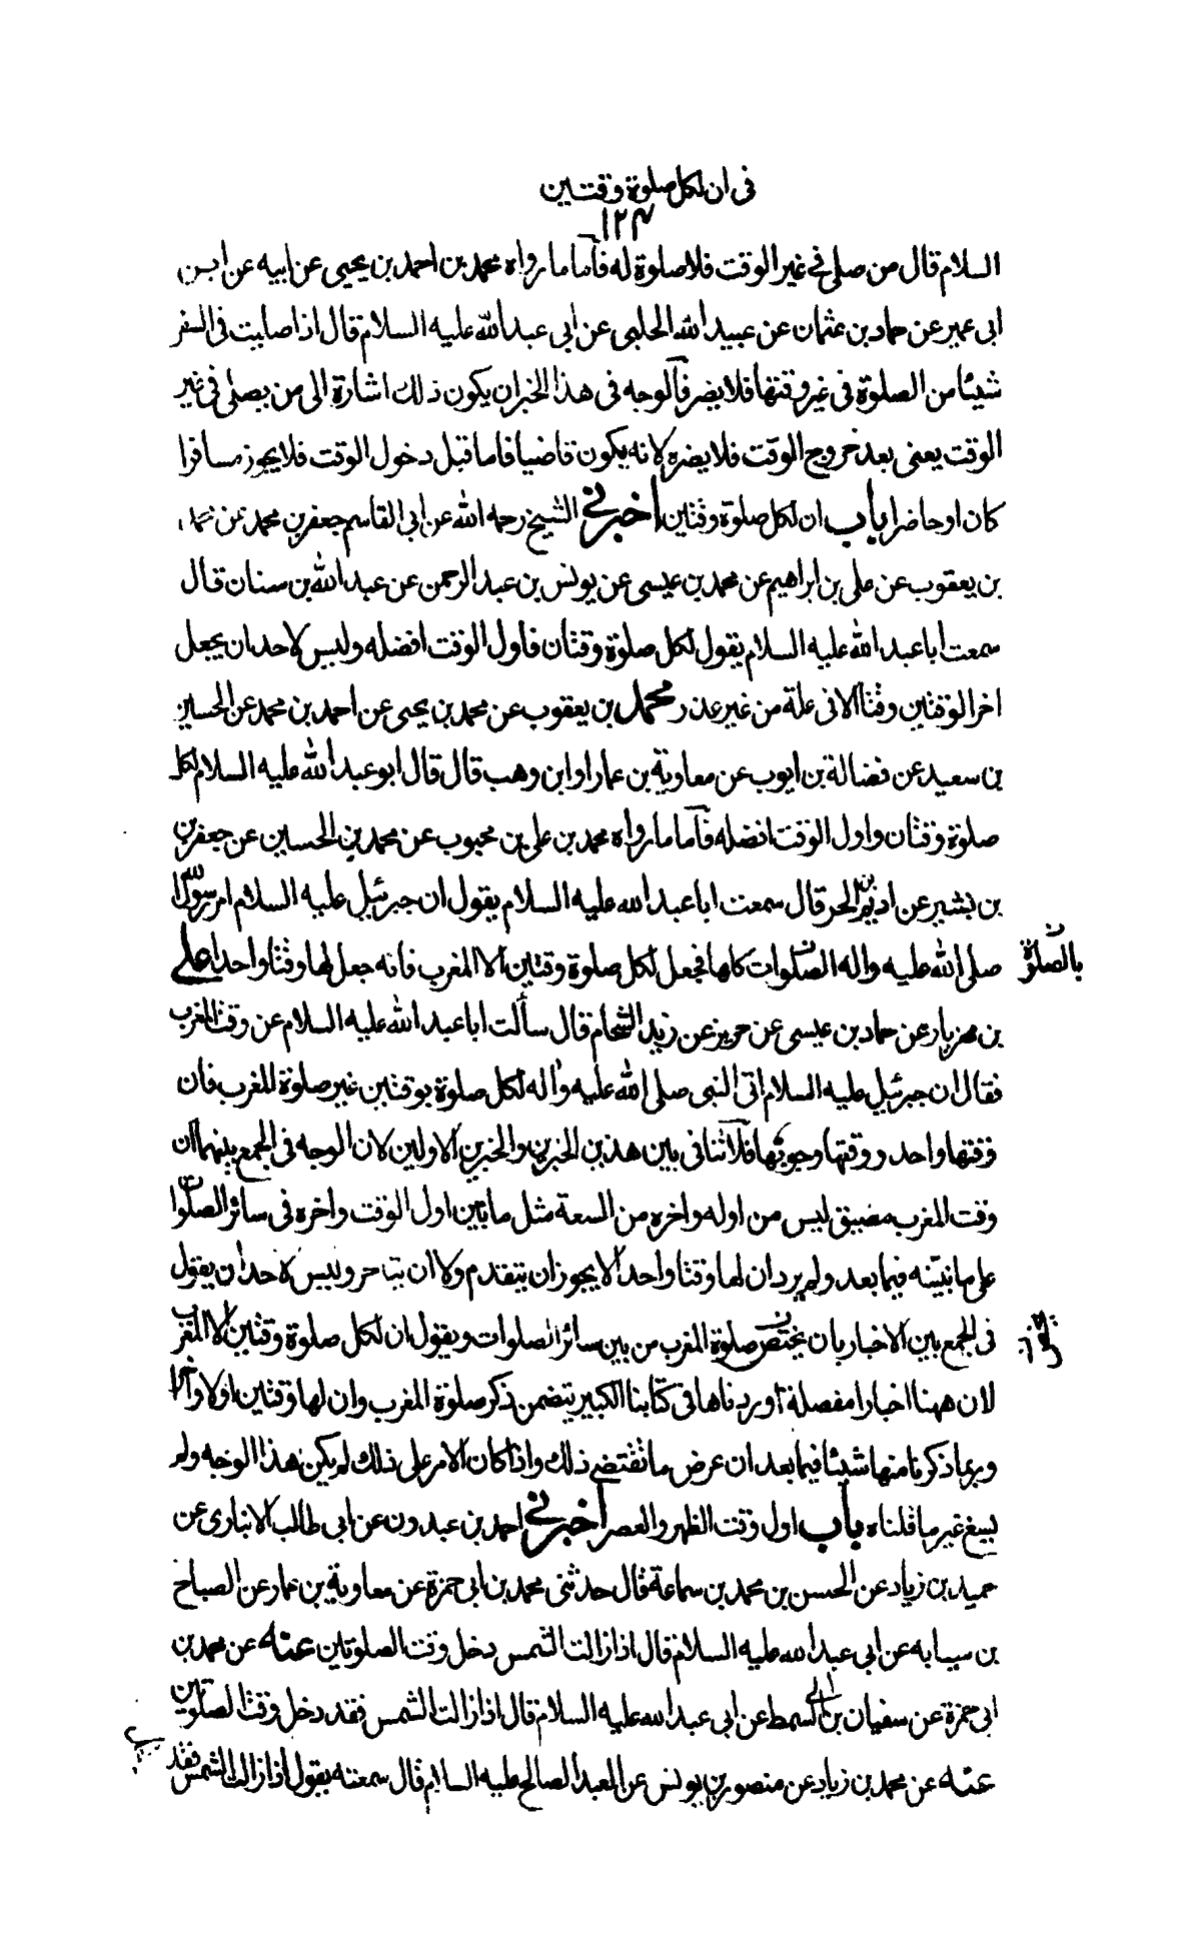 فى ان لكل صلوة وقتين
١٢٣
السلام قال من صلى فى غير الوقت فلا صلوة له فاما ما رواه محمد بن احمد بن يحيى عن ابيه عن ابن
ابى عمير عن حماد بن عثمان عن عبيد الله الحلبى عن ابى عبد الله عليه السلام قال اذا صليت فى السفر
شيئا من الصلوة فى غير وقتها فلا يضر فالوجه فى هذا الخبر ان يكون ذلك اشارة الى من يصلى فى غير
الوقت يعنى بعد خروج الوقت فلا يضره لانه يكون قاضيا فاما قبل دخول الوقت فلا يجوز مسافرا
كان او حاضرا باب ان لكل صلوة وقتين اخبرنى الشيخ رحمه الله عن ابى القاسم جعفر بن محمد عن محمد
بن يعقوب عن على بن ابراهيم عن محمد بن عيسى عن يونس بن عبد الرحمن عن عبد الله بن سنان قال
سمعت ابا عبد الله عليه السلام يقول لكل صلوة وقتان فاول الوقت افضله وليس لاحد ان يجعل
اخر الوقتين وقتا الا فى علة من غير عذر محمد بن يعقوب عن محمد بن يحيى عن احمد بن محمد عن الحسين
بن سعيد عن فضالة بن ايوب عن معاوية بن عمار او ابن وهب قال قال ابو عبد الله عليه السلام لكل
صلوة وقتان واول الوقت افضله فاما ما رواه محمد بن على بن محبوب عن محمد بن الحسين عن جعفر بن
بن بشير عن اديم بن الحر قال سمعت ابا عبد الله عليه السلام يقول ان جبرئيل عليه السلام امر رسول الله
صلى الله عليه واله الصلوات كلها فجعل لكل صلوة وقتين الا المغرب فانه جعل لها وقتا واحدا على
بالصلوة
بن مهزيار عن حماد بن عيسى عن حريز عن زيد الشحام قال سألت ابا عبد الله عليه السلام عن وقت المغرب
فقال ان جبرئيل عليه السلام اتى النبى صلى الله عليه واله لكل صلوة بوقتين غير صلوة المغرب فان
وقتها واحد ووقتها وجوبها فلا تنافى بين هذين الخبرين والخبرين الاولين لان الوجه فى الجمع بينهما ان
وقت المغرب مضيق ليس من اوله واخره من السعة مثل ما بين اول الوقت واخره فى سائر الصلوات
على ما نبينه فيما بعد ولم يرد ان لها وقتا واحدا لا يجوز ان يتقدم ولا ان يتاخر وليس لاحد ان يقول
فى الجمع بين الاخبار بان يختص صلوة المغرب من بين سائر الصلوات ويقول ان لكل صلوة وقتين الا المغرب
لان ههنا اخبارا مفصلة اوردناها فى كتابنا الكبير يتضمن ذكر صلوة المغرب وان لها وقتين اولا واخرا
وربما ذكرنا منها شيئا فيما بعد ان عرض ما تقتضى ذلك واذا كان الامر على ذلك لم يكن هذا الوجه ولم
يسغ غير ما قلناه باب اول وقت الظهر والعصر اخبرنى احمد بن عبدون عن ابى طالب الانبارى عن
حميد بن زياد عن الحسن بن محمد بن سماعة قال حدثنى محمد بن ابى حمزة عن معاوية بن عمار عن الصباح
بن سيابه عن ابى عبد الله عليه السلام قال اذا زالت الشمس دخل وقت الصلوتين عنه عن محمد بن
ابى حمزة عن سفيان بن السمط عن ابى عبد الله عليه السلام قال اذا زالت الشمس فقد دخل وقت الصلوتين
عنه عن محمد بن زياد عن منصور بن يونس عن العبد الصالح عليه السلام قال سمعته يقول اذا زالت الشمس فقد